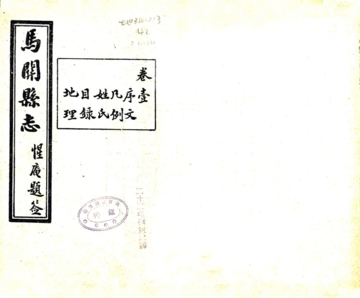 馬關縣志
惺庵題签
卷壹
序文
凡例
姓氏
目錄
地理